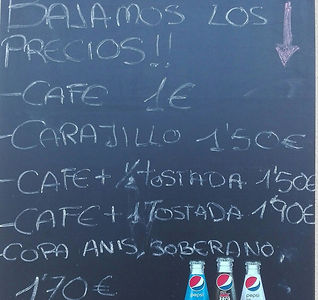 BAJAMOS LOS
PRECIOS!!
-CAFE 1€
-CARAJILLO 1'50€
-CAFE+ 1/2 TOSTADA 1'50€
-CAFE+1 TOSTADA 1'90€
-COPA ANIS, SOBERANO,
1'70€
pepsi pepsi